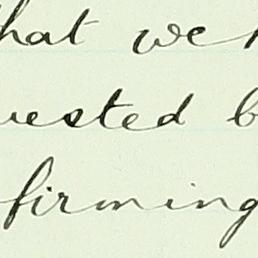 that we
uested b
firming